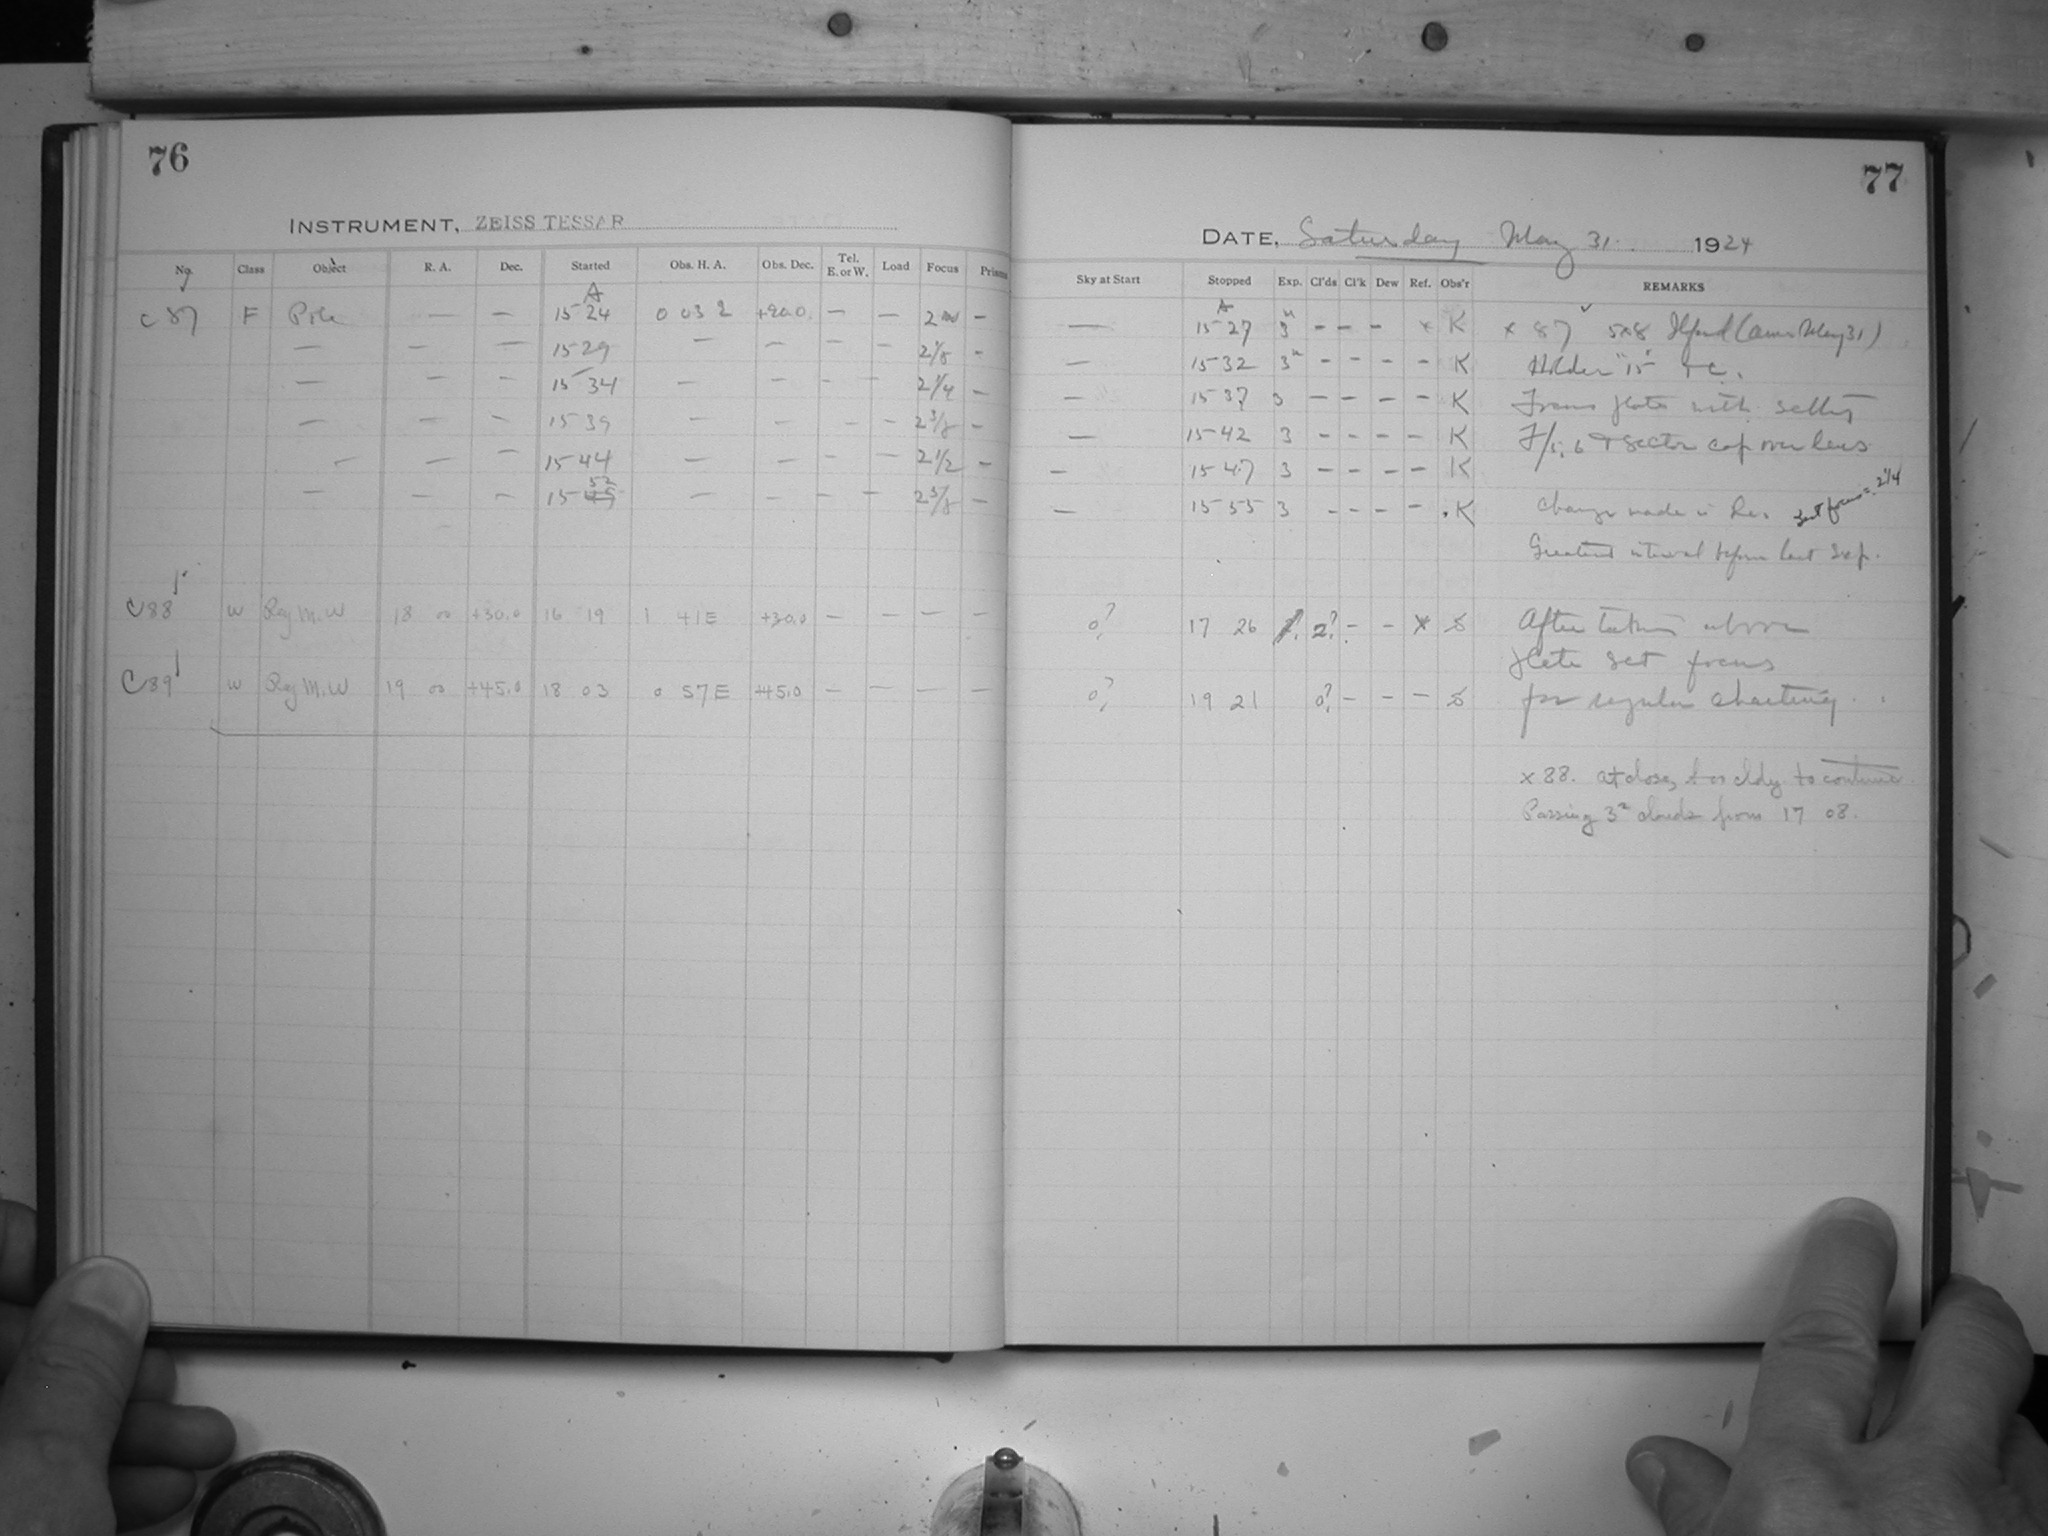 76
INSTRUMENT, ZEISS TESSAR
No. Class Object R. A. Dec. Started Obs. H. A. Obs. Dec. Tel. E. or W. Load Focus Prisms
A
C 87 F Pole — — 15 24 0 03 2 +90.0 — — 2 —
— — — 15 29 — — — — 2 1/8 —
— — — 15 34 — — — — 2 1/4 —
— — — 15 39 — — — — 2 3/8 —
— — — 15 44 — — — — 2 1/2 —
52
— — — 15 49 — — — — 2 5/8 —
C88 W Reg M.W 18 00 +30.0 16 19 1 41 E +30.0 — — — —
C89 W Reg M.W 19 00 +45.0 18 03 0 57 E +45.0 — — — —
77
DATE, Saturday May 31. 1924
Sky at Start Stopped Exp. Cl'ds Cl'k Dew Ref. Obs'r REMARKS
A
— 15 27 3 – – – x K x 87 5x8 Ilford (
— 15 32 3 – – – – K Holder 15
— 15 37 3 – – – – K plate with
— 15 42 3 – – – – K F/5.6 sector cap over lens
— 15 47 3 – – – – K
— 15 55 3 – – – – K Change made in focus = 2 1/4
Greatest interval before last Exp.
0? 17 26 2? – – x S After taking above
plate set focus
0? 19 21 0? – – – S for regular charting.
x 88. at close, too cldy. to continue.
Passing clouds from 17 08.